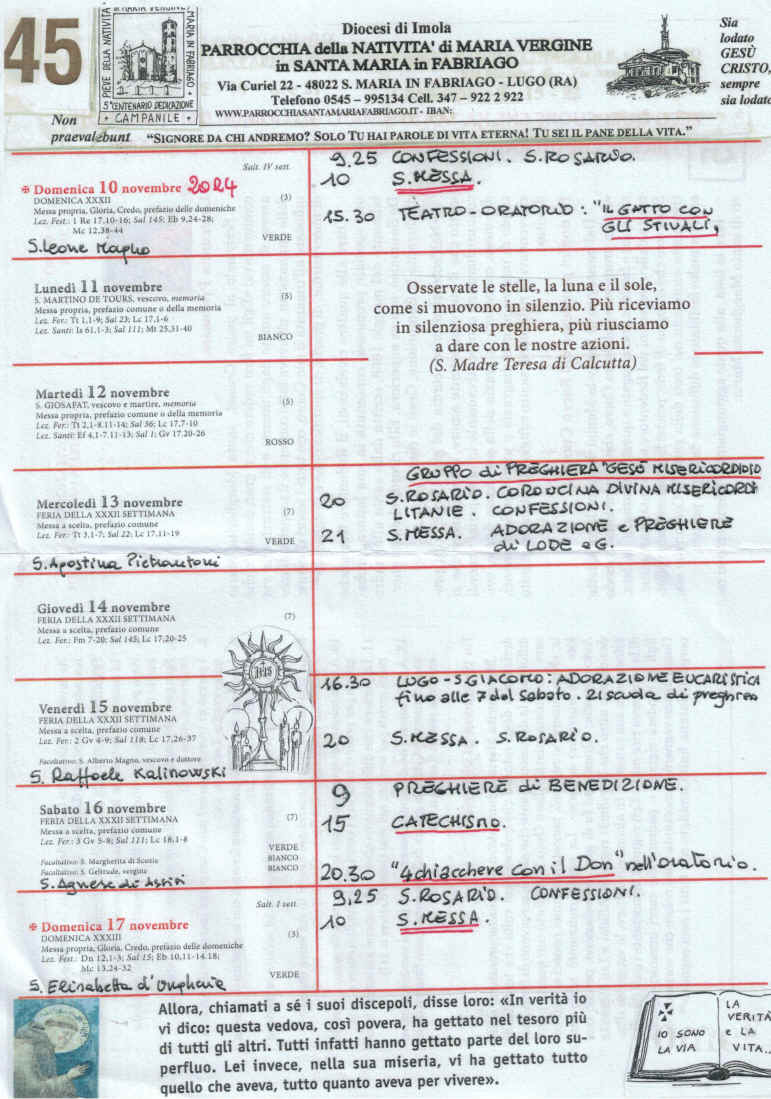 45
PIEVE DELLA NATIVITÀ
DI MARIA VERGINE
MARIA IN FABRIAGO
5° CENTENARIO DEDICAZIONE
• CAMPANILE •
Non
praevalebunt
Diocesi di Imola
PARROCCHIA della NATIVITA' di MARIA VERGINE
in SANTA MARIA in FABRIAGO
Via Curiel 22 - 48022 S. MARIA IN FABRIAGO - LUGO (RA)
Telefono 0545 – 995134 Cell. 347 – 922 2 922
WWW.PARROCCHIASANTAMARIAFABRIAGO.IT - IBAN:
"SIGNORE DA CHI ANDREMO? SOLO TU HAI PAROLE DI VITA ETERNA! TU SEI IL PANE DELLA VITA."
Sia
lodato
GESÙ
CRISTO,
sempre
sia lodato
Salt. IV sett.
✠ Domenica 10 novembre 2024
DOMENICA XXXII (3)
Messa propria, Gloria, Credo, prefazio delle domeniche
Lez. Fest.: 1 Re 17,10-16; Sal 145; Eb 9,24-28;
Mc 12,38-44
VERDE
S. Leone Magno
9.25 CONFESSIONI. S. ROSARIO.
10 S. MESSA.
15.30 TEATRO-ORATORIO: "IL GATTO CON
GLI STIVALI,
Lunedì 11 novembre
S. MARTINO DE TOURS, vescovo, memoria (5)
Messa propria, prefazio comune o della memoria
Lez. Fer.: Tt 1,1-9; Sal 23; Lc 17,1-6
Lez. Santi: Is 61,1-3; Sal 111; Mt 25,31-40
BIANCO
Osservate le stelle, la luna e il sole,
come si muovono in silenzio. Più riceviamo
in silenziosa preghiera, più riusciamo
a dare con le nostre azioni.
(S. Madre Teresa di Calcutta)
Martedì 12 novembre
S. GIOSAFAT, vescovo e martire, memoria (5)
Messa propria, prefazio comune o della memoria
Lez. Fer.: Tt 2,1-8.11-14; Sal 36; Lc 17,7-10
Lez. Santi: Ef 4,1-7.11-13; Sal 1; Gv 17,20-26
ROSSO
Mercoledì 13 novembre
FERIA DELLA XXXII SETTIMANA (7)
Messa a scelta, prefazio comune
Lez. Fer.: Tt 3,1-7; Sal 22; Lc 17,11-19
VERDE
S. Agostina Pietrantoni
GRUPPO di PREGHIERA "GESÙ MISERICORDIOSO
20 S. ROSARIO. CORONCINA DIVINA MISERICORDI
LITANIE. CONFESSIONI.
21 S. MESSA. ADORAZIONE e PREGHIERE
di LODE e G.
Giovedì 14 novembre
FERIA DELLA XXXII SETTIMANA (7)
Messa a scelta, prefazio comune
Lez. Fer.: Fm 7-20; Sal 145; Lc 17,20-25
Venerdì 15 novembre
FERIA DELLA XXXII SETTIMANA
Messa a scelta, prefazio comune
Lez. Fer.: 2 Gv 4-9; Sal 118; Lc 17,26-37
Facoltativo: S. Alberto Magno, vescovo e dottore
S. Raffaele Kalinowski
16.30 LUGO - S. GIACOMO: ADORAZIONE EUCARISTICA
fino alle 7 del Sabato. 21 scuola di preghiera
20 S. MESSA. S. ROSARIO.
Sabato 16 novembre
FERIA DELLA XXXII SETTIMANA (7)
Messa a scelta, prefazio comune
Lez. Fer.: 3 Gv 5-8; Sal 111; Lc 18,1-8
VERDE
Facoltativo: S. Margherita di Scozia BIANCO
Facoltativo: S. Geltrude, vergine BIANCO
S. Agnese di Assisi
9 PREGHIERE di BENEDIZIONE.
15 CATECHISMO.
20.30 "4 chiacchere con il Don" nell'oratorio.
Salt. I sett.
✠ Domenica 17 novembre
DOMENICA XXXIII (3)
Messa propria, Gloria, Credo, prefazio delle domeniche
Lez. Fest.: Dn 12,1-3; Sal 15; Eb 10,11-14.18;
Mc 13,24-32
VERDE
S. Elisabetta d'Ungheria
9,25 S. ROSARIO. CONFESSIONI.
10 S. MESSA.
Allora, chiamati a sé i suoi discepoli, disse loro: «In verità io
vi dico: questa vedova, così povera, ha gettato nel tesoro più
di tutti gli altri. Tutti infatti hanno gettato parte del loro su-
perfluo. Lei invece, nella sua miseria, vi ha gettato tutto
quello che aveva, tutto quanto aveva per vivere».
IO SONO
LA VIA
LA
VERITÀ
e LA
VITA..